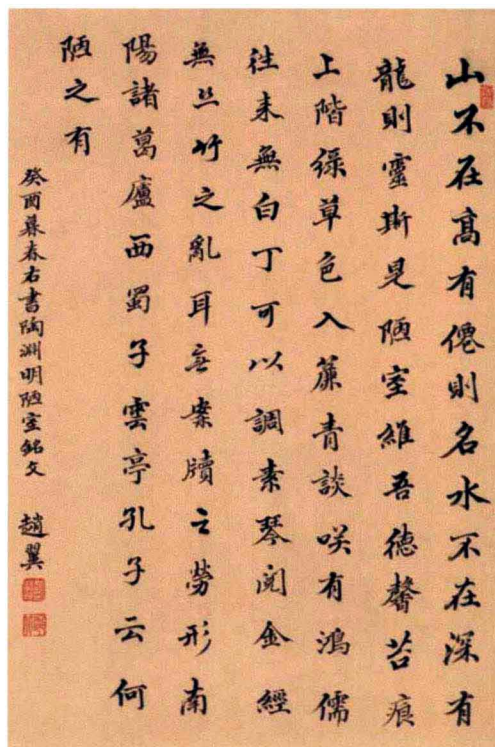 山不在高有僊則名水不在深有
龍則靈斯是陋室維吾德馨苔痕
上階綠草色入簾青談咲有鴻儒
往来無白丁可以調素琴閱金經
無丝竹之亂耳无案牘之勞形南
陽諸葛廬西蜀子雲亭孔子云何
陋之有
癸酉暮春右書陶渊明陋室銘文 趙翼